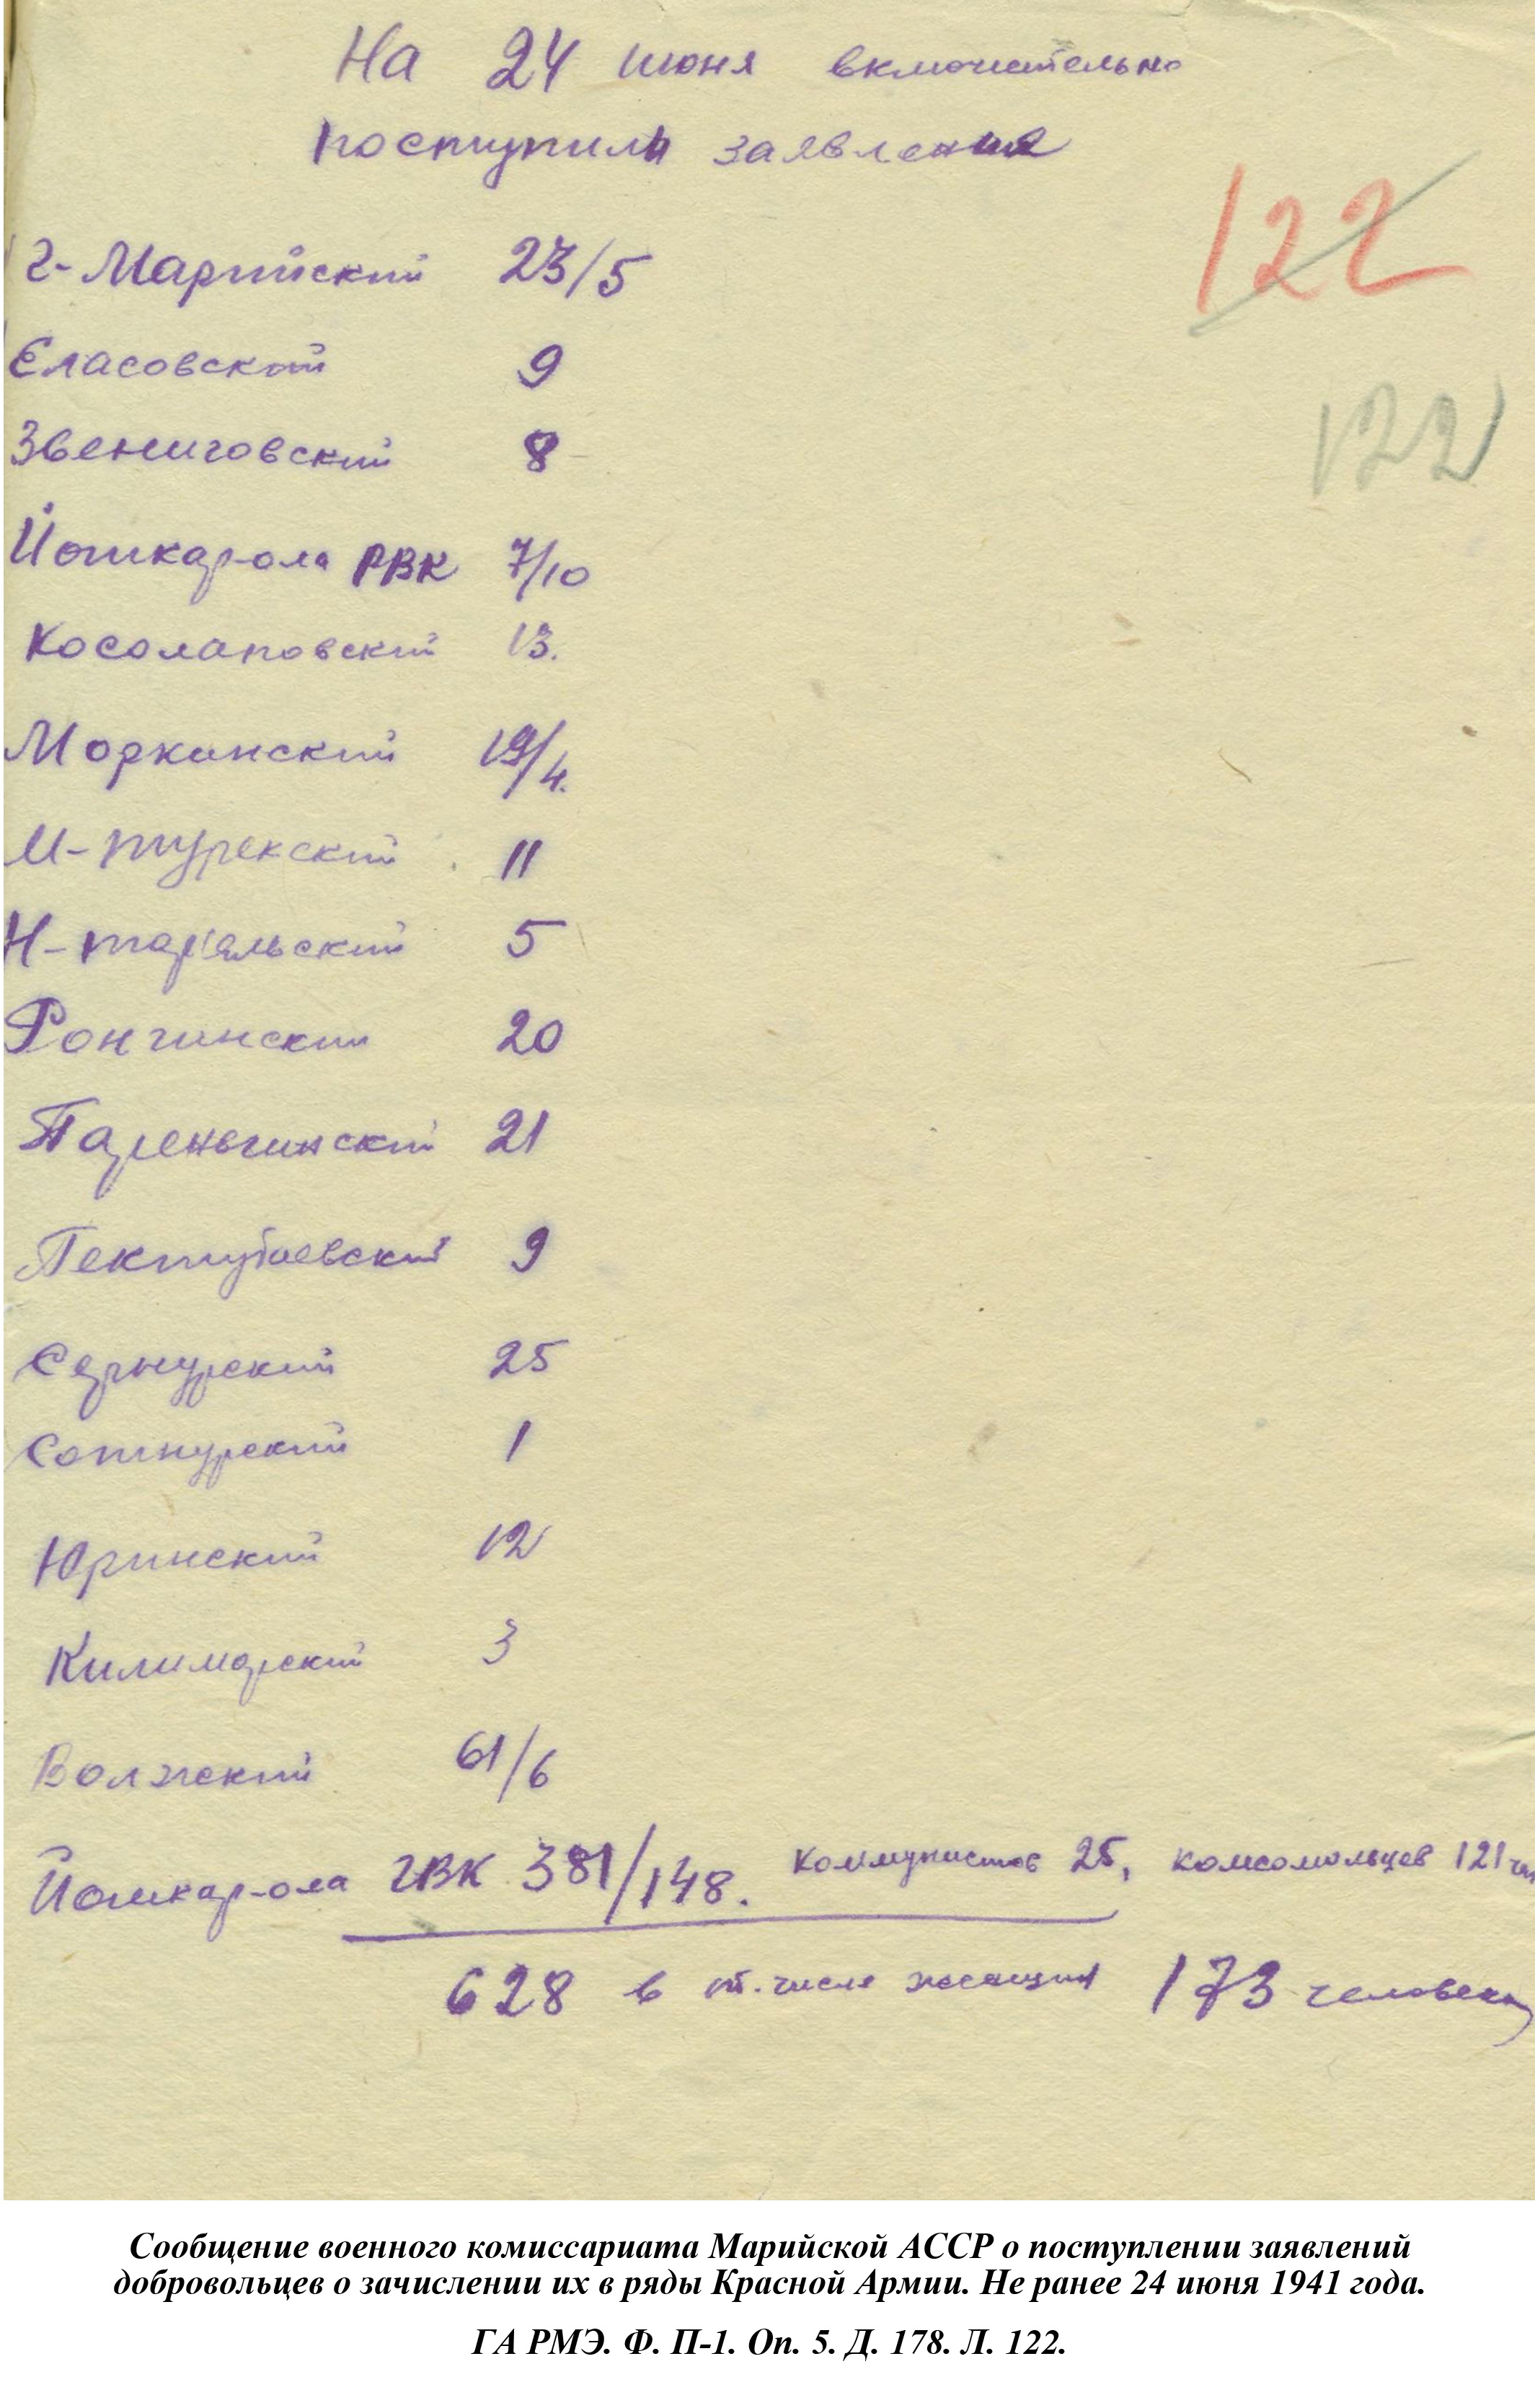 На 24 июня включительно
поступили заявления
122
122
г-Марийский 23/5
Еласовский 9
Звениговский 8
Йошкар-ола РВК 7/10
Косолаповский 13.
Моркинский 19/4.
М-турекский 11
Н-тор'яльский 5
Ронгинский 20
Пареньгинский 21
Пектубаевский 9
Сернурский 25
Сотнурский 1
Юринский 12
Килимарский 3
Волжский 61/6
Йошкар-ола ГВК 381/148. коммунистов 25, комсомольцев 121 чел
628 в т.числе женщин 173 человека
Сообщение военного комиссариата Марийской АССР о поступлении заявлений
добровольцев о зачислении их в ряды Красной Армии. Не ранее 24 июня 1941 года.
ГА РМЭ. Ф. П-1. Оп. 5. Д. 178. Л. 122.